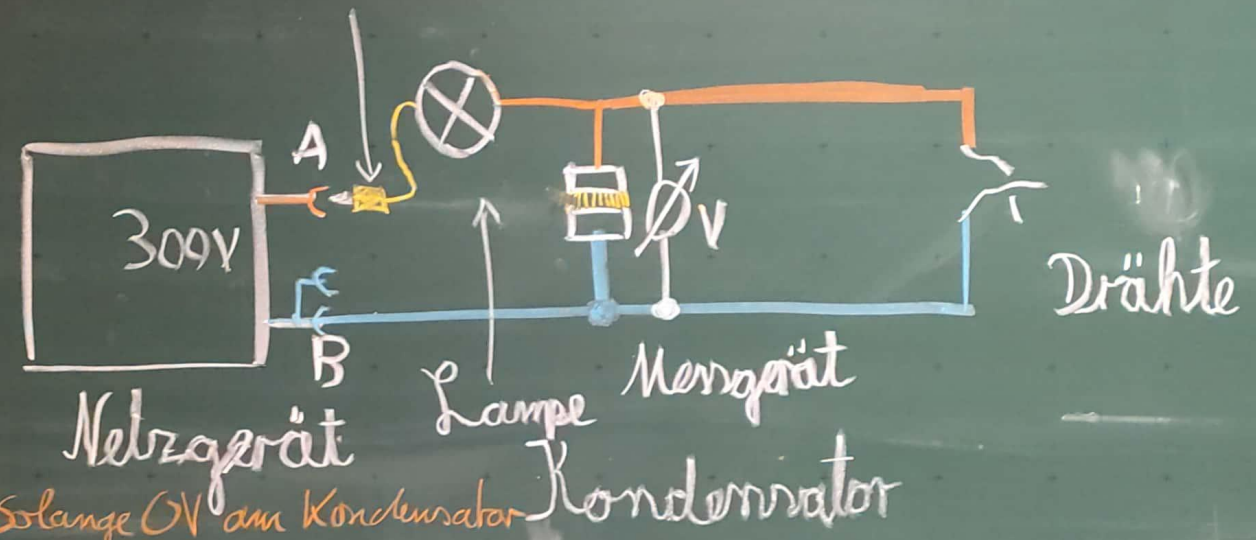 A
300V
V
Drähte
B
Messgerät
Lampe
Netzgerät
Kondensator
Solange 0V am Kondensator